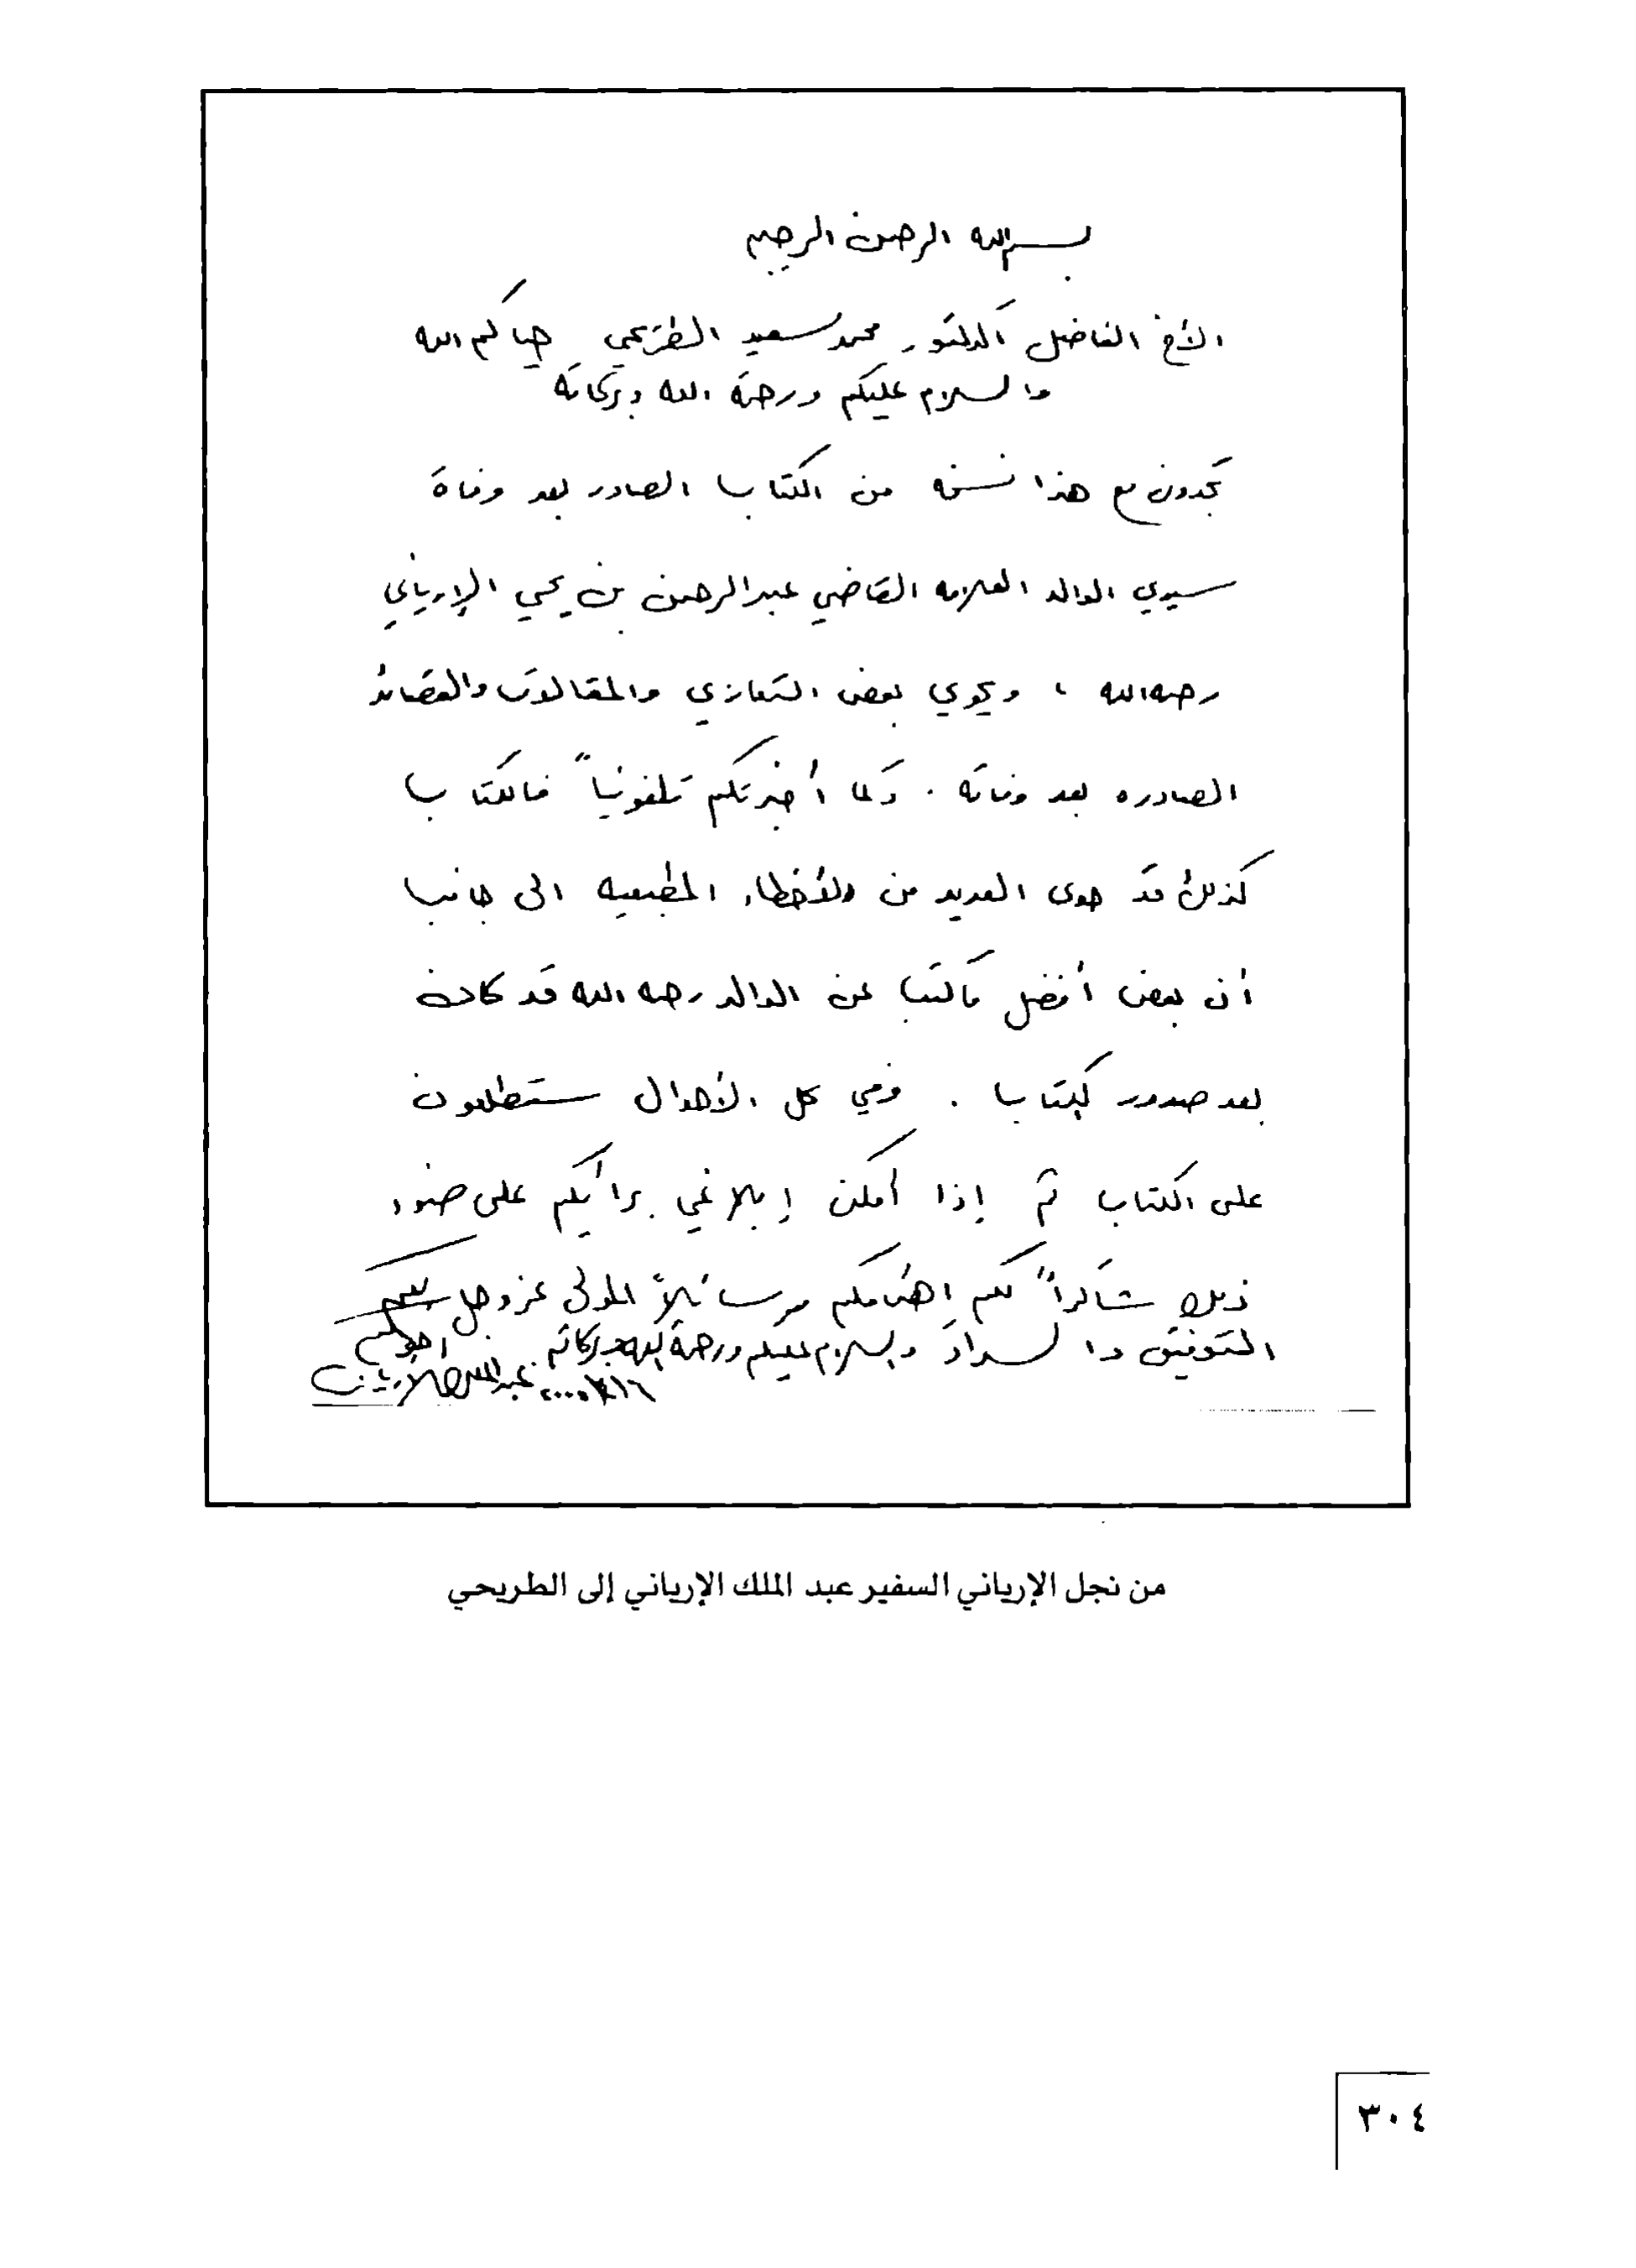 بسم الله الرحمن الرحيم
الأخ الفاضل الدكتور محمد سعيد الطريحي حياكم الله
والسلام عليكم ورحمة الله وبركاته
تجدون مع هذا نسخه من الكتاب الصادر بعد وفاة
سيدي الوالد العلامه القاضي عبدالرحمن بن يحيى الإرياني
رحمه الله ، ويحوي بعض التعازي والمقالات والقصائد
الصادره بعد وفاته . وكما أخبرتكم تلفونياً فالكتاب
كذلك قد حوى العديد من الأخطاء المطبعيه الى جانب
أن بعض أفضل ماكتب عن الوالد رحمه الله قد كان
بعد صدور الكتاب . وفي كل الأحوال ستطلعون
على الكتاب ثم إذا أمكن إبلاغي برأيكم على ضوء
ذلك شاكراً لكم اهتمامكم وسائلاً المولى عز وجل لكم
التوفيق والسداد والسلام عليكم ورحمة الله وبركاته أخوكم
عبدالملك الإرياني
من نجل الإرياني السفير عبد الملك الإرياني إلى الطريحي
٣٠٤